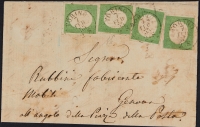 Signor
Rubbini fabbricante
Mobili Genova
all'angolo della Piazza della Posta